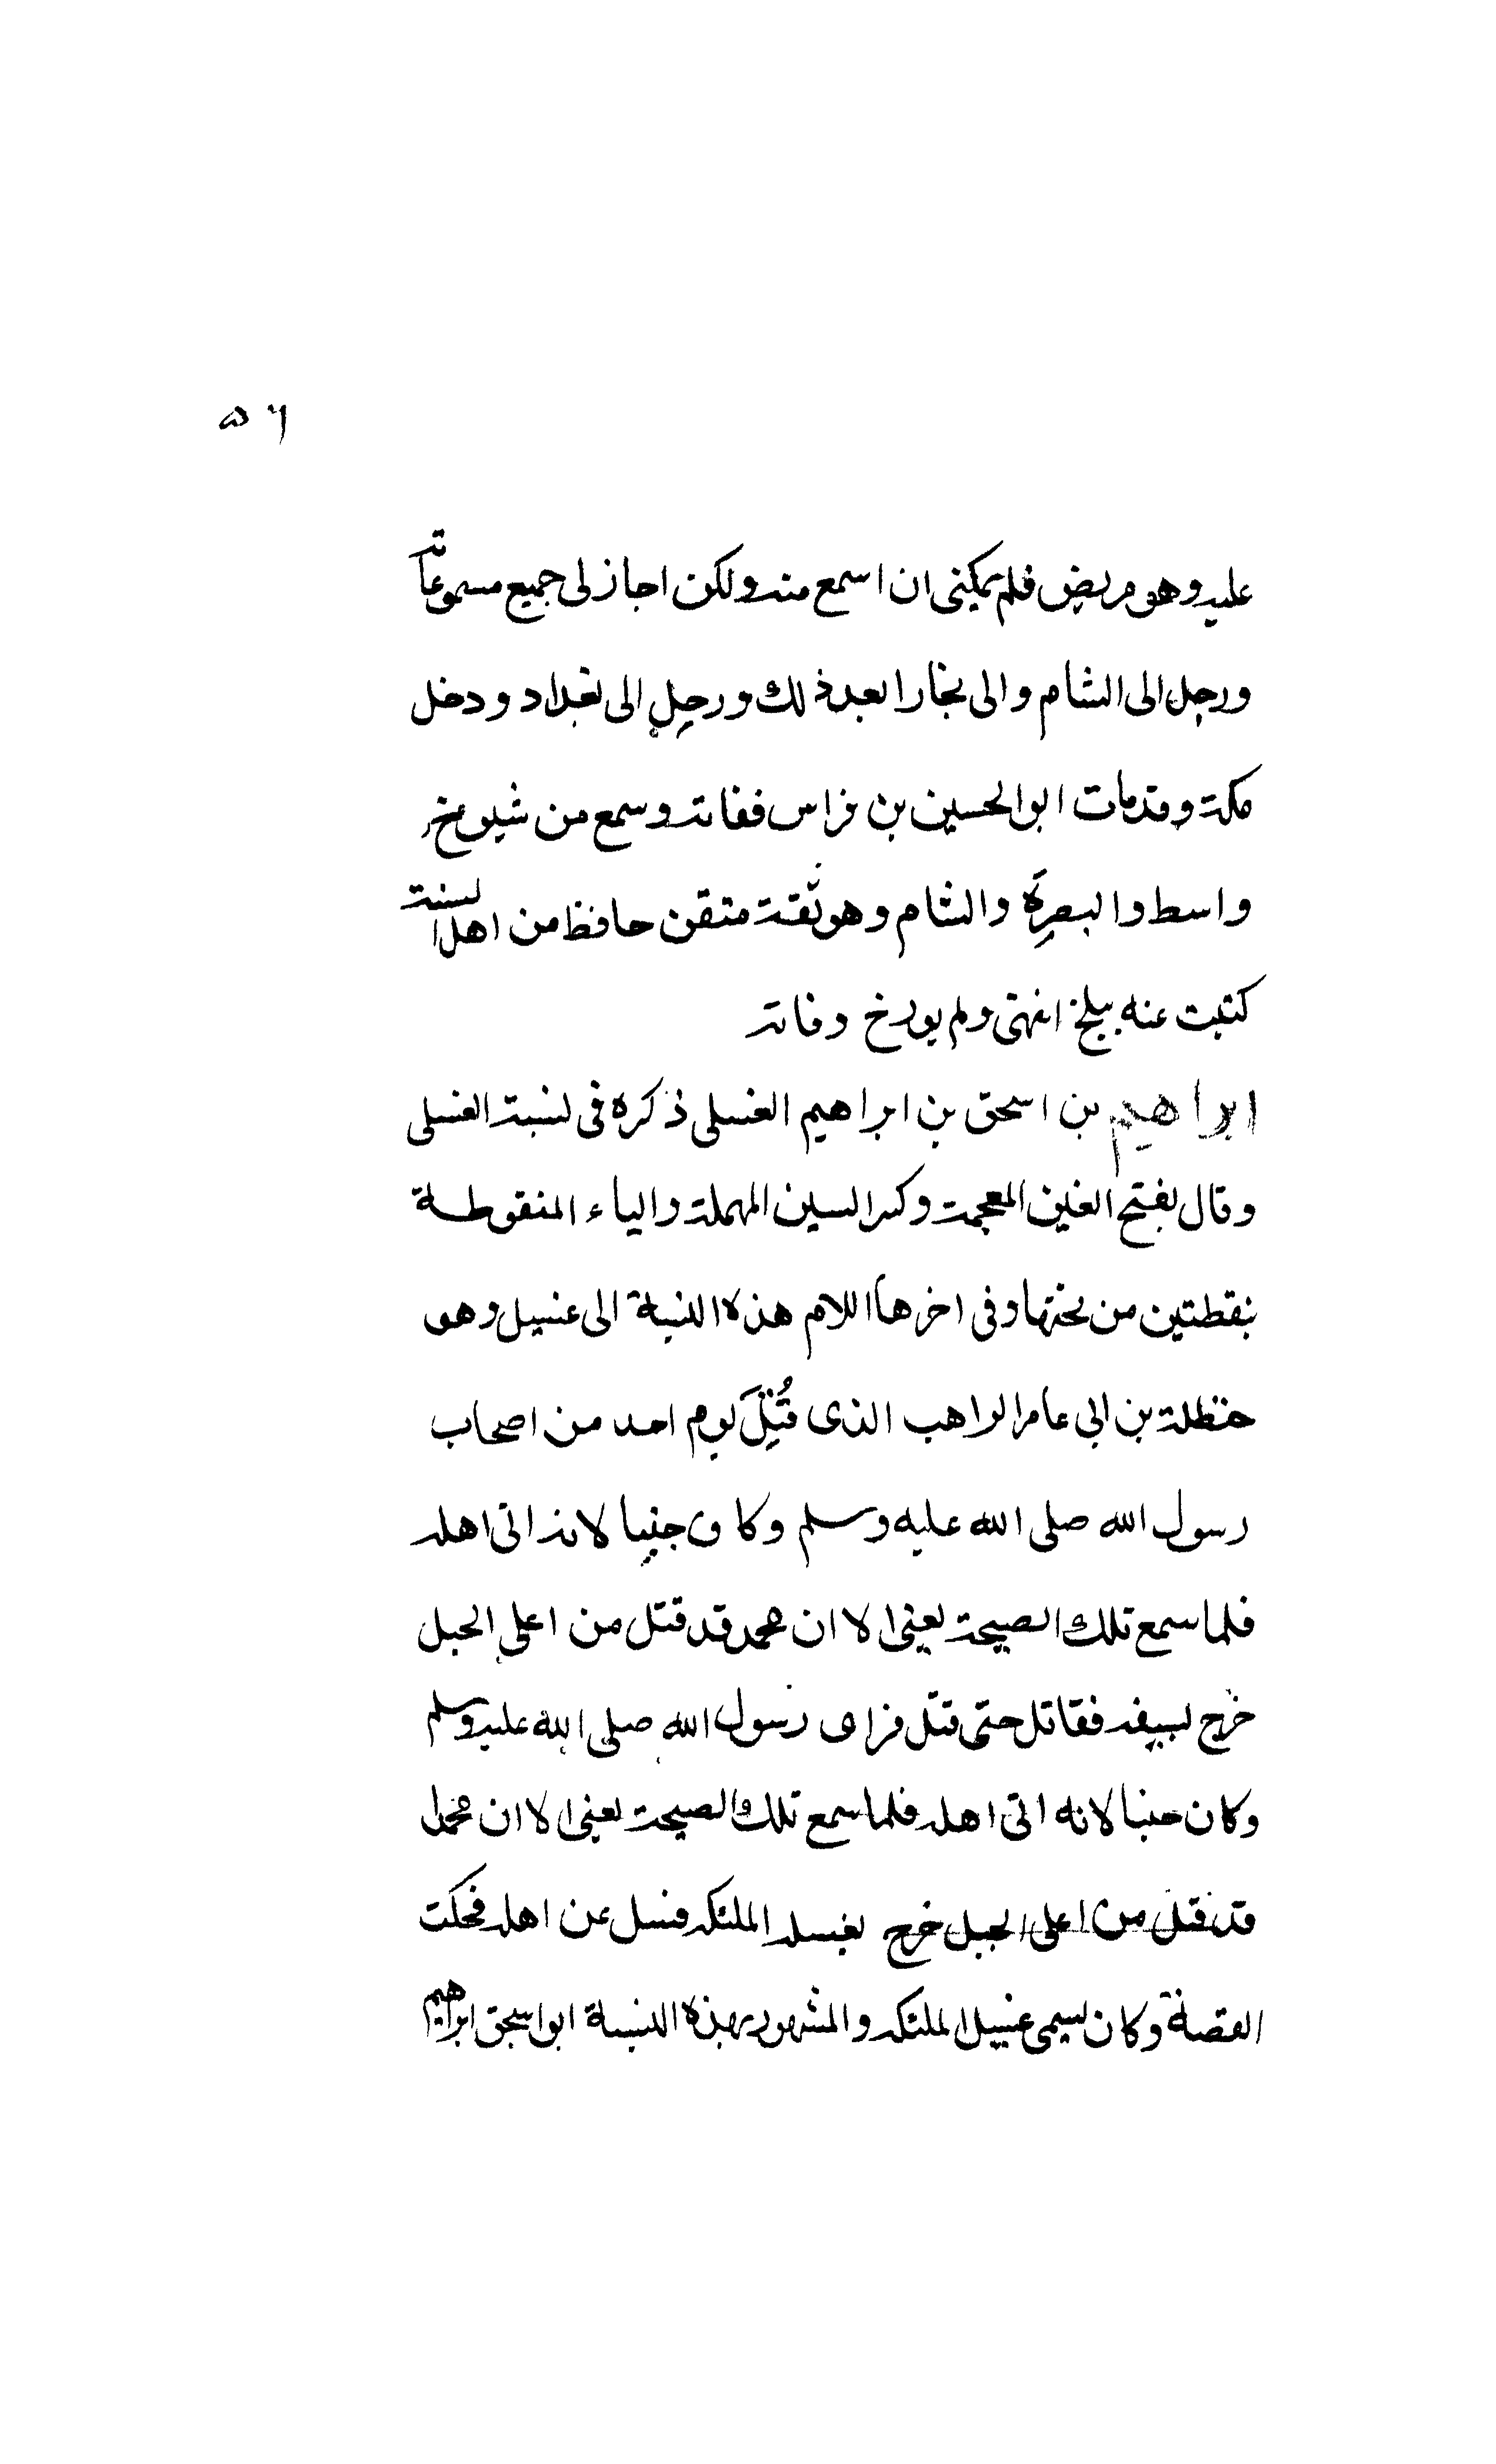 ٥٦
عليه وهو مريض فلم يمكني ان اسمع منه ولكن اجاز لي جميع مسموعاته
ورحل الى الشام والى بخارا بعد ذلك ورحل الى بغداد ودخل
مكة وقد مات ابو الحسين بن فراس ففاته وسمع من شيوخ
واسط والبصرة والشام وهو ثقة متقن حافظ من اهل السنة
كتبت عنه ببلخ انتهى ولم يورخ وفاته
ابراهيم بن اسحق بن ابراهيم الغسلى ذكره فى نسبة الغسلى
وقال بفتح الغين المعجمة وكسر السين المهملة والياء المنقوطة
بنقطتين من تحتها وفى اخرها اللام هذه النسبة الى غسيل وهو
حنظلة بن ابي عامر الراهب الذى قُتِلَ يوم احد من اصحاب
رسول الله صلى الله عليه وسلم وكان جنبا لانه اتى اهله
فلما سمع تلك الصيحة يعنى الا ان محمد قد قتل من اعلى الجبل
خرج بسيفه فقاتل حتى قتل فراى رسول الله صلى الله عليه وسلم
وكان جنبا لانه اتى اهله فلما سمع تلك الصيحة يعنى الا ان محمدا
قد قتل من اعلى الجبل خرج بغسله الملئكه فسل عن اهله فحكت
القصة وكان يسمى غسيل الملئكه والمشهور بهذه النسبة ابو اسحق ابراهيم